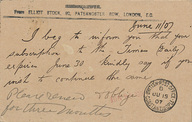 From ELLIOT STOCK, 62, PATERNOSTER ROW, LONDON, E.C.
June 11/07
I beg to inform you that your
subscription to the Times Weekly
expires June 30 Kindly say if you
wish to continue the same
Please renew & oblige
for three months
PATERNOSTER
JU 15
07